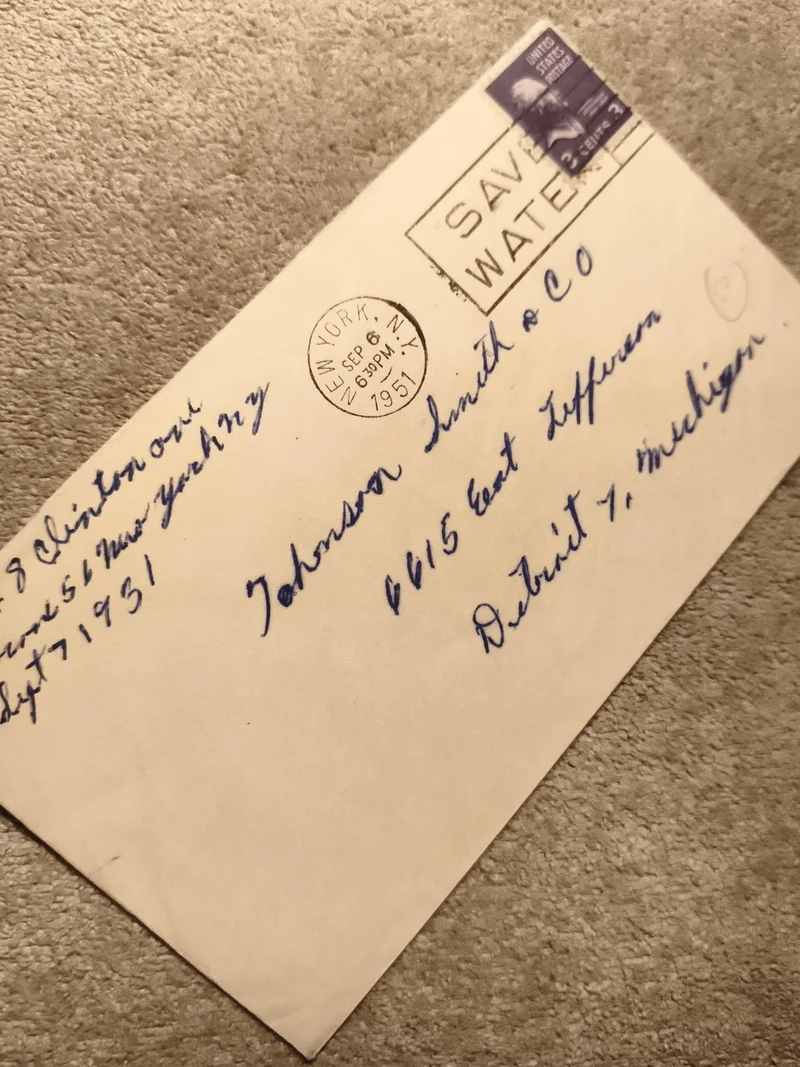 UNITED
STATES
POSTAGE
3 CENTS 3
SAVE
WATER
NEW YORK, N.Y.
SEP 6
630PM
1951
8 Clinton ave
56 New York NY
Sept 7 1951
Johnson Smith & CO
6615 East Jefferson
Detroit 7, Michigan